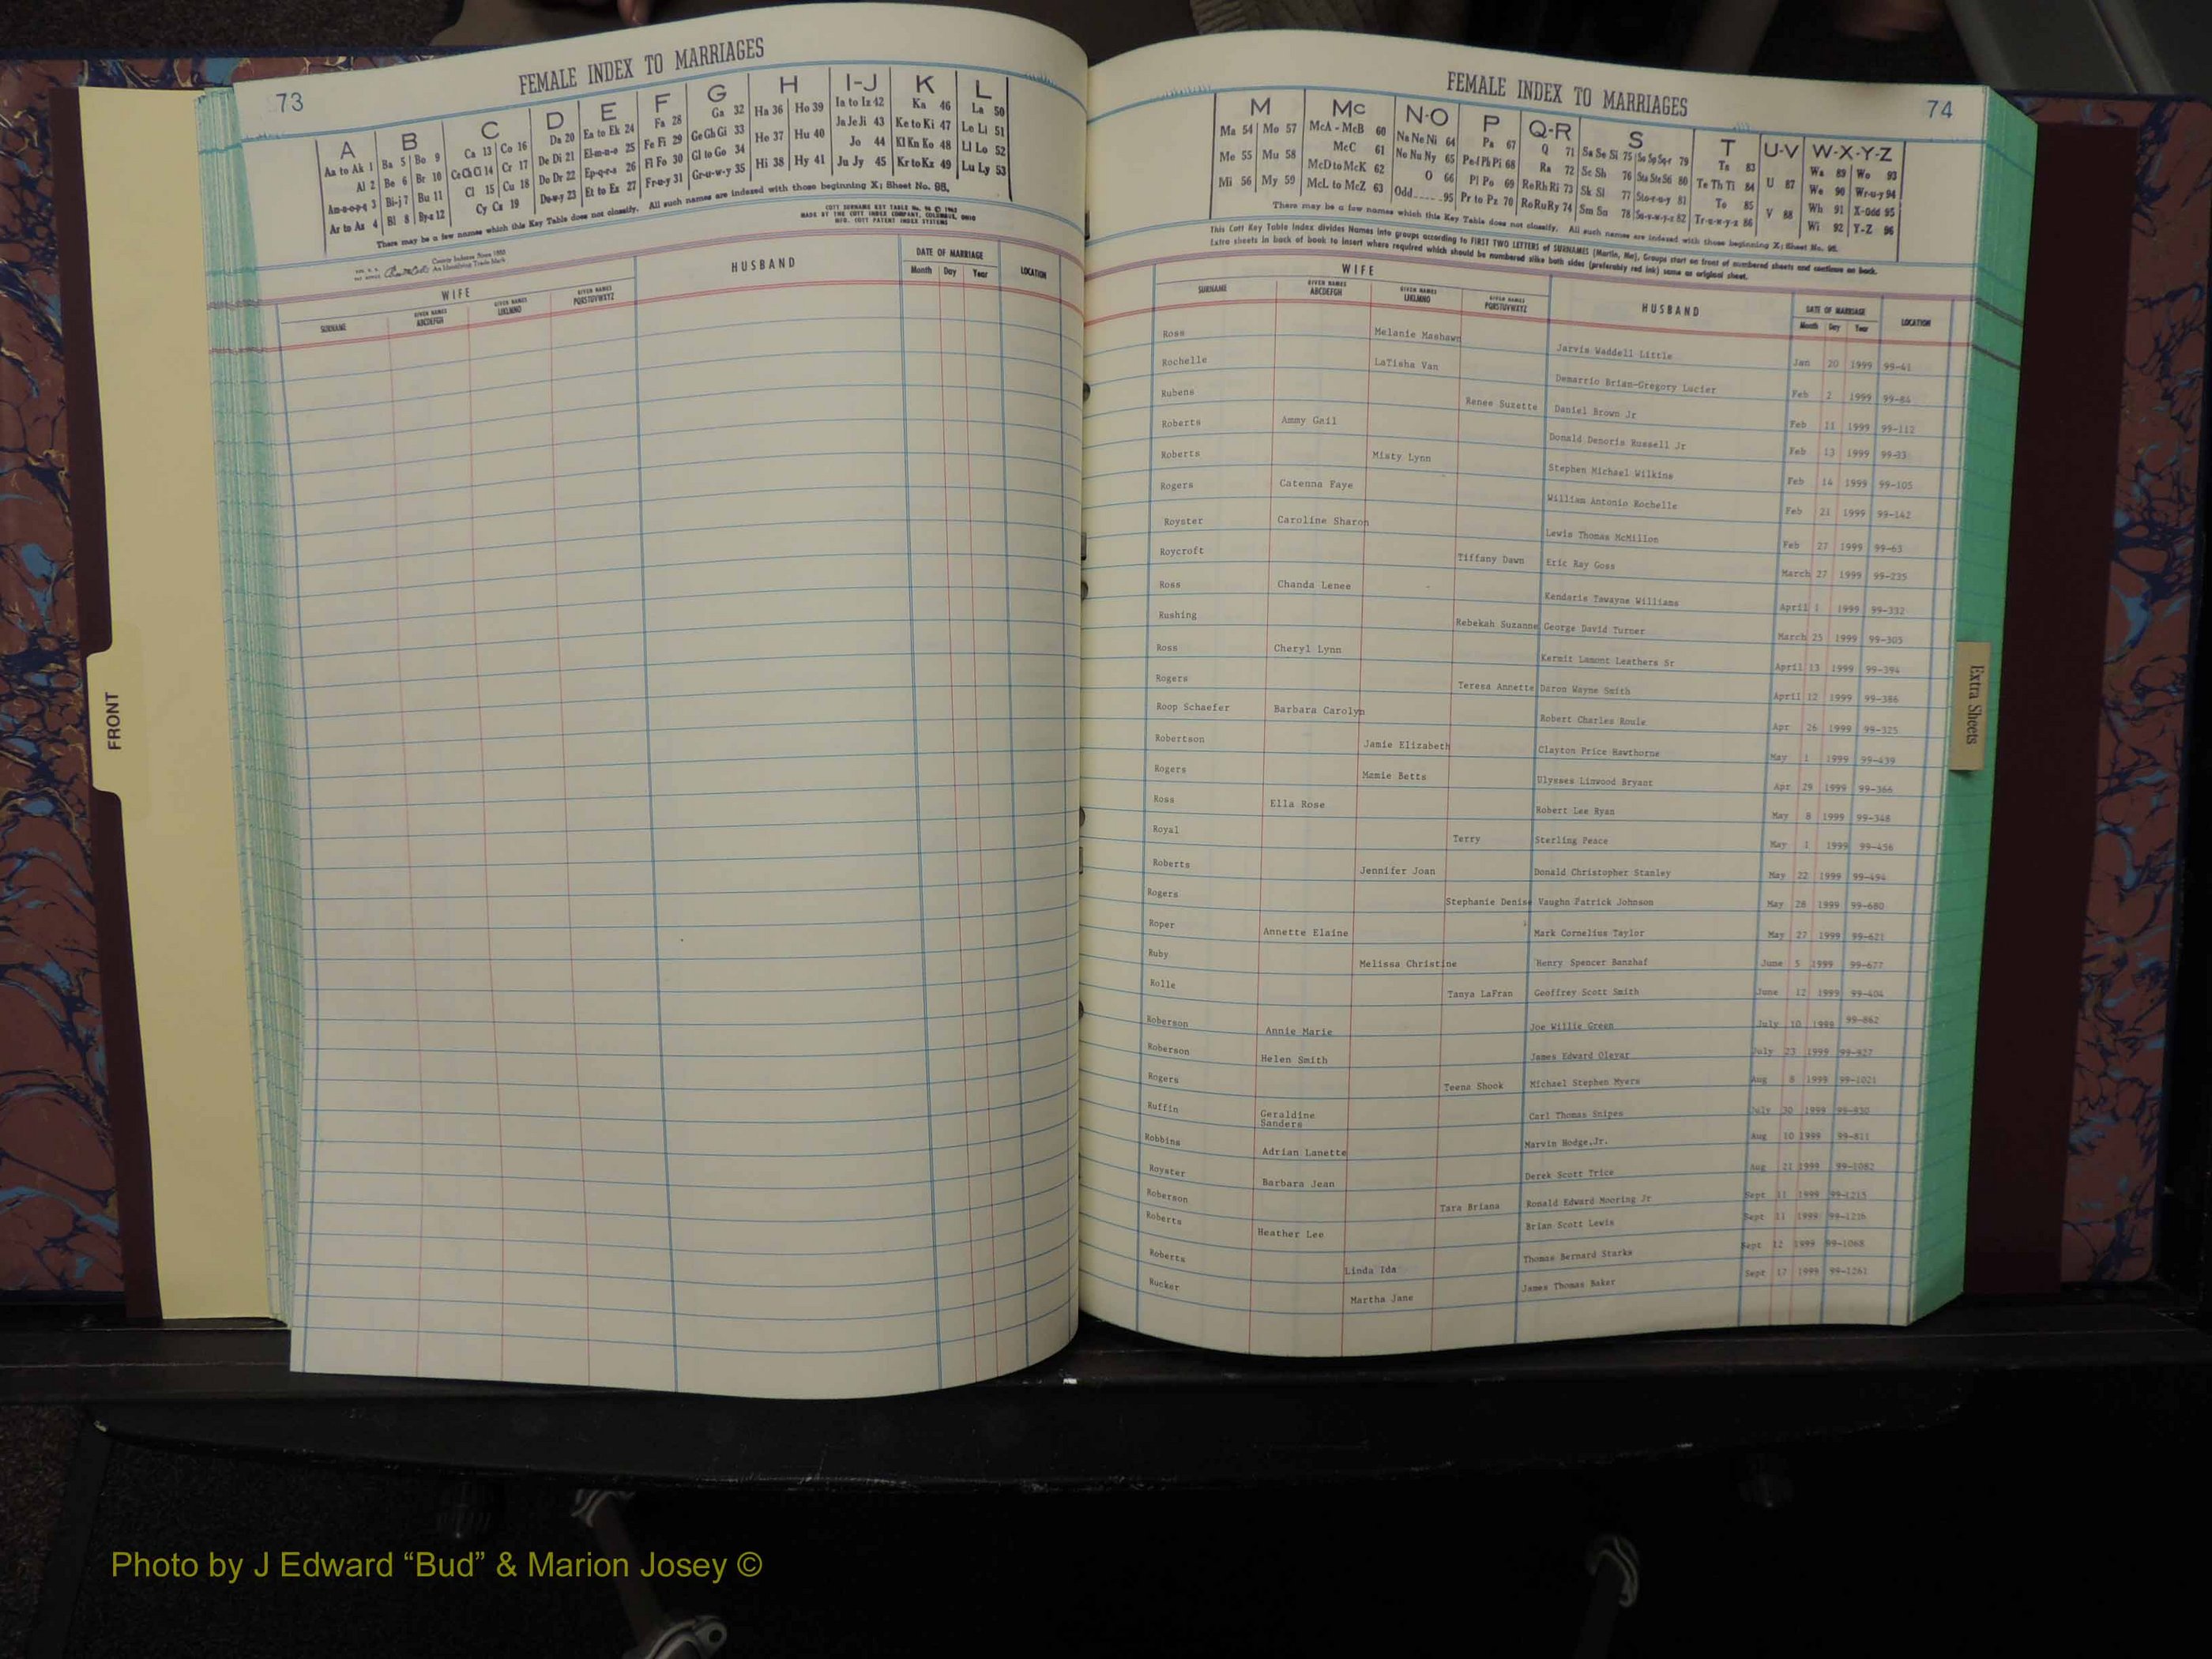 73
FEMALE INDEX TO MARRIAGES
A B C D E F G H I-J K L
Aa to Ak 1 Ba 5 Bo 9 Ca 13 Co 16 Da 20 Ea to Ek 24 Fa 28 Ga 32 Ha 36 Ho 39 Ia to Iz 42 Ka 46 La 50
Al 2 Be 6 Br 10 Ce Ch Ci 14 Cr 17 De Di 21 El-m-n-o 25 Fe Fi 29 Ge Gh Gi 33 He 37 Hu 40 Ja Je Ji 43 Ke to Ki 47 Le Li 51
Am-n-o-p-q 3 Bi-j 7 Bu 11 Cl 15 Cu 18 Do Dr 22 Ep-q-r-s 26 Fl Fo 30 Gl to Go 34 Hi 38 Hy 41 Jo 44 Kl Kn Ko 48 Ll Lo 52
Ar to Az 4 Bl 8 By-z 12 Cy Cz 19 Du-w-y 23 Et to Ez 27 Fr-u-y 31 Gr-u-w-y 35 Ju Jy 45 Kr to Kz 49 Lu Ly 53
There may be a few names which this Key Table does not classify. All such names are indexed with those beginning X; Sheet No. 95.
COTT SURNAME KEY TABLE No. 96 © 1962
MADE BY THE COTT INDEX COMPANY, COLUMBUS, OHIO
MFG. COTT PATENT INDEX SYSTEMS
County Indexes Since 1888
An Identifying Trade Mark
WIFE HUSBAND DATE OF MARRIAGE LOCATION
SURNAME GIVEN NAMES ABCDEFGH GIVEN NAMES IJKLMNO GIVEN NAMES PQRSTUVWXYZ Month Day Year
FEMALE INDEX TO MARRIAGES
74
M Mc N-O P Q-R S T U-V W-X-Y-Z
Ma 54 Mo 57 McA - McB 60 Na Ne Ni 64 Pa 67 Q 71 Sa Se Si 75 So Sp Sq-r 79 Ta 83 U 87 Wa 89 Wo 93
Me 55 Mu 58 McC 61 No Nu Ny 65 Pe-f Ph Pi 68 Ra 72 Sc Sh 76 Sta Ste Sti 80 Te Th Ti 84 V 88 We 90 Wr-u-y 94
Mi 56 My 59 McD to McK 62 O 66 Pl Po 69 Re Rh Ri 73 Sk Sl 77 Sto-r-u-y 81 To 85 Wh 91 X-Odd 95
McL to McZ 63 Odd 95 Pr to Pz 70 Ro Ru Ry 74 Sm Sn 78 Su-v-w-y-z 82 Tr-u-w-y-z 86 Wi 92 Y-Z 96
There may be a few names which this Key Table does not classify. All such names are indexed with those beginning X; Sheet No. 95.
This Cott Key Table Index divides Names into groups according to FIRST TWO LETTERS of SURNAMES (Martin, Ma). Groups start on front of numbered sheets and continue on back.
Extra sheets in back of book to insert where required which should be numbered alike both sides (preferably red ink) same as original sheet.
WIFE HUSBAND DATE OF MARRIAGE LOCATION
SURNAME GIVEN NAMES ABCDEFGH GIVEN NAMES IJKLMNO GIVEN NAMES PQRSTUVWXYZ Month Day Year
Ross Melanie Mashawn Jarvis Waddell Little Jan 20 1999 99-41
Rochelle LaTisha Van Demarrio Brian-Gregory Lucier Feb 2 1999 99-84
Rubens Renee Suzette Daniel Brown Jr Feb 11 1999 99-112
Roberts Ammy Gail Donald Denoris Russell Jr Feb 13 1999 99-93
Roberts Misty Lynn Stephen Michael Wilkins Feb 14 1999 99-105
Rogers Catenna Faye William Antonio Rochelle Feb 21 1999 99-142
Royster Caroline Sharon Lewis Thomas McMillon Feb 27 1999 99-63
Roycroft Tiffany Dawn Eric Ray Goss March 27 1999 99-235
Ross Chanda Lenee Kendaris Tawayne Williams April 1 1999 99-332
Rushing Rebekah Suzanne George David Turner March 25 1999 99-305
Ross Cheryl Lynn Kermit Lamont Leathers Sr April 13 1999 99-394
Rogers Teresa Annette Daron Wayne Smith April 12 1999 99-386
Roop Schaefer Barbara Carolyn Robert Charles Rouls Apr 26 1999 99-325
Robertson Jamie Elizabeth Clayton Price Hawthorne May 1 1999 99-439
Rogers Mamie Betts Ulysses Linwood Bryant Apr 29 1999 99-366
Ross Ella Rose Robert Lee Ryan May 8 1999 99-348
Royal Terry Sterling Peace May 1 1999 99-456
Roberts Jennifer Joan Donald Christopher Stanley May 22 1999 99-494
Rogers Stephanie Denise Vaughn Patrick Johnson May 28 1999 99-680
Roper Annette Elaine Mark Cornelius Taylor May 27 1999 99-621
Ruby Melissa Christine Henry Spencer Banzhaf June 5 1999 99-677
Rolle Tanya LaFran Geoffrey Scott Smith June 12 1999 99-404
Roberson Annie Marie Joe Willie Green July 10 1999 99-862
Roberson Helen Smith James Edward Olevar July 23 1999 99-927
Rogers Teena Shook Michael Stephen Myers Aug 8 1999 99-1021
Ruffin Geraldine Sanders Carl Thomas Snipes July 30 1999 99-930
Robbins Adrian Lanette Marvin Hodge,Jr. Aug 10 1999 99-811
Royster Barbara Jean Derek Scott Trice Aug 21 1999 99-1082
Roberson Tara Briana Ronald Edward Mooring Jr Sept 11 1999 99-1215
Roberts Heather Lee Brian Scott Lewis Sept 11 1999 99-1216
Roberts Linda Ida Thomas Bernard Starks Sept 12 1999 99-1068
Rucker Martha Jane James Thomas Baker Sept 17 1999 99-1261
FRONT
Extra Sheets
Photo by J Edward “Bud” & Marion Josey ©